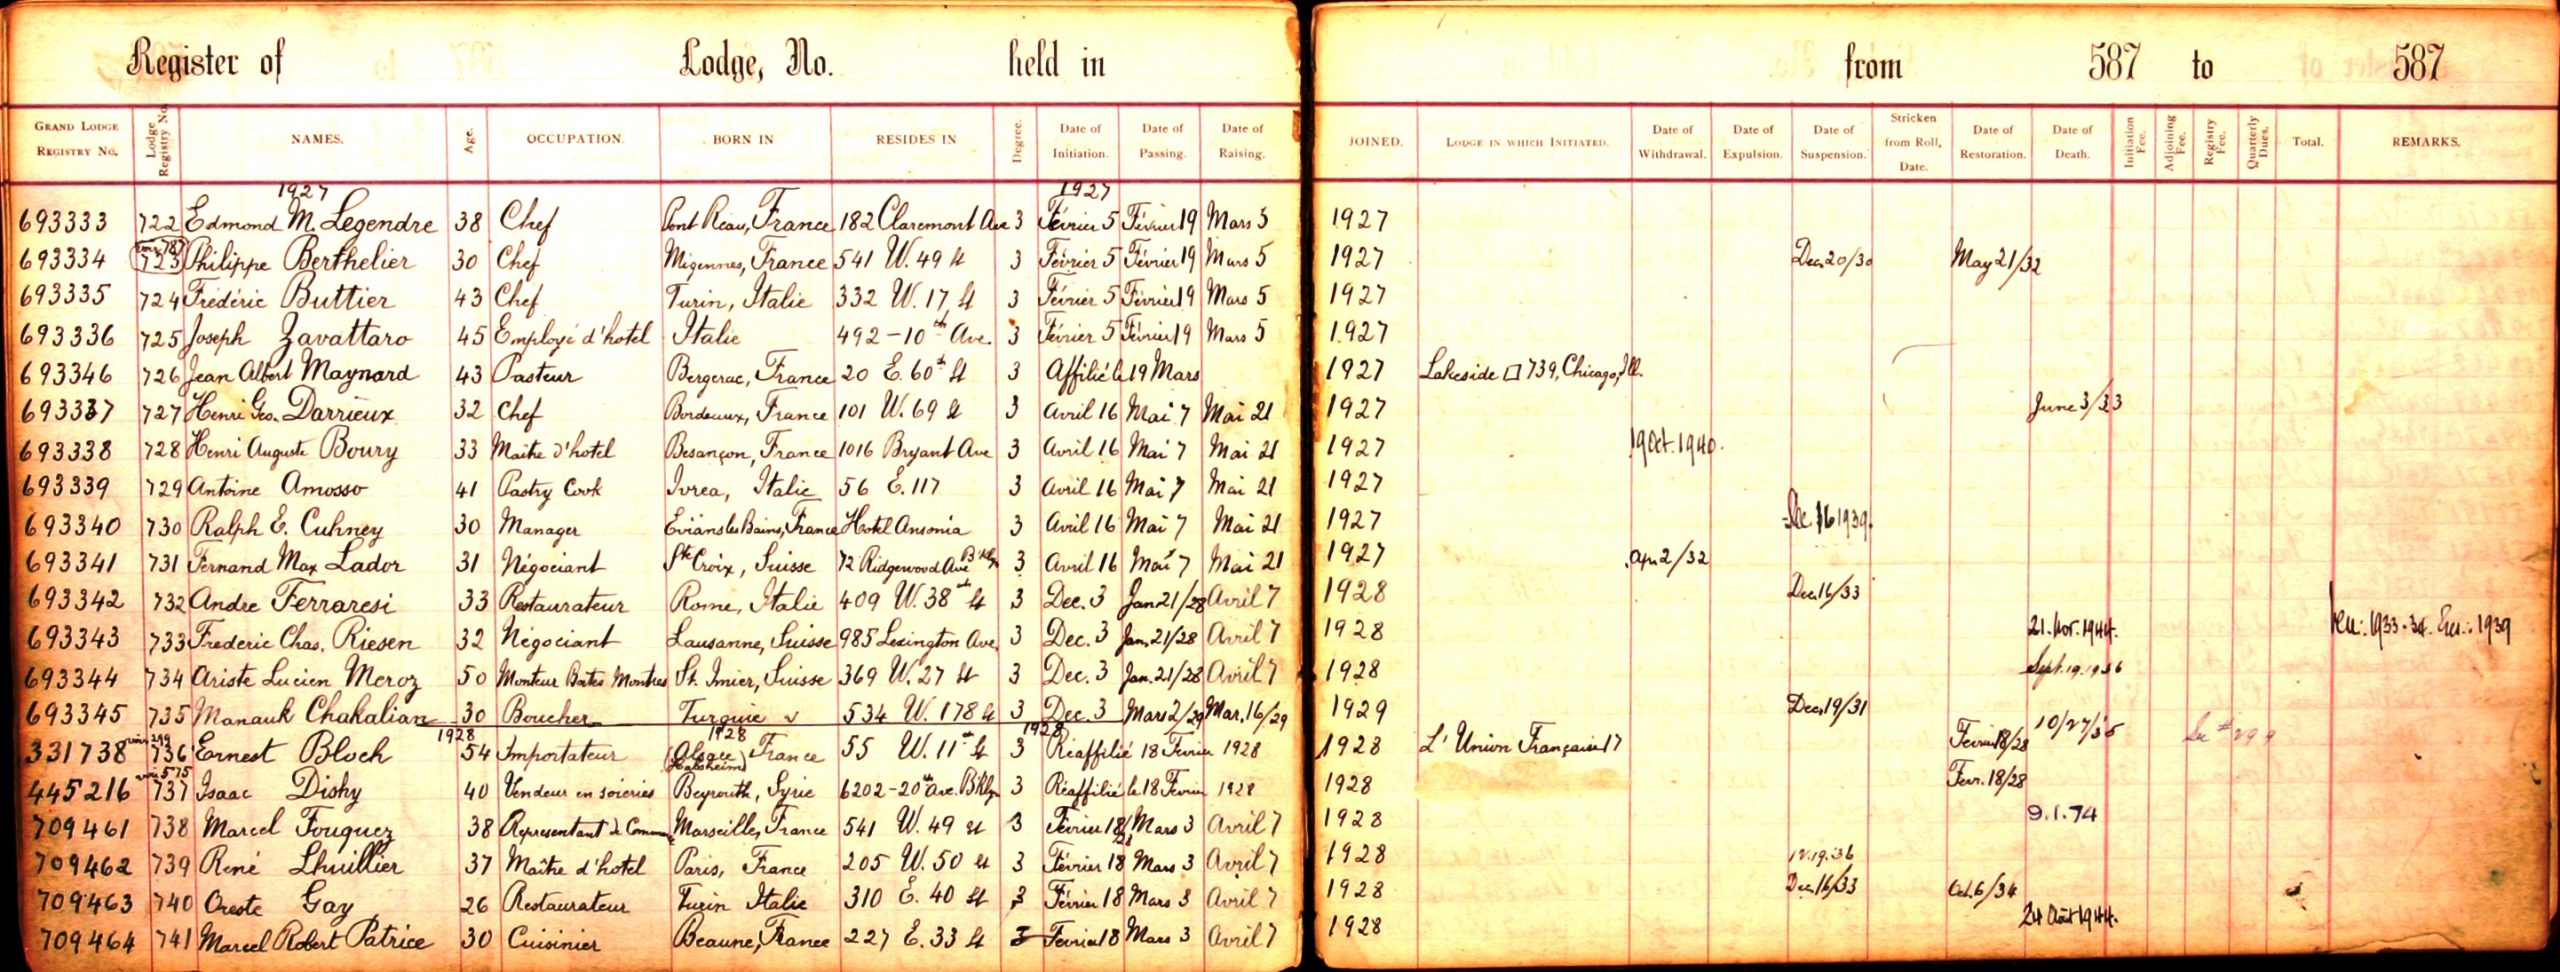 Register of Lodge, No. held in from 587 to 587
GRAND LODGE REGISTRY NO. Lodge Registry No. NAMES. Age. OCCUPATION. BORN IN RESIDES IN Degree. Date of Initiation. Date of Passing. Date of Raising. JOINED. LODGE IN WHICH INITIATED. Date of Withdrawal. Date of Expulsion. Date of Suspension. Stricken from Roll, Date. Date of Restoration. Date of Death. Initiation Fee. Adjoining Fee. Registry Fee. Quarterly Dues. Total. REMARKS.
1927 1927
693333 722 Edmond M. Legendre 38 Chef Pont Réau, France 182 Claremont Ave 3 Février 5 Février 19 Mars 5 1927
693334 voir 787 723 Philippe Berthelier 30 Chef Migennes, France 541 W. 49 St 3 Février 5 Février 19 Mars 5 1927 Dec. 20/30 May 21/32
693335 724 Frédéric Buttier 43 Chef Turin, Italie 332 W. 17 St 3 Février 5 Février 19 Mars 5 1927
693336 725 Joseph Zavattaro 45 Employé d'hotel Italie 492 - 10th Ave. 3 Février 5 Février 19 Mars 5 1927
693346 726 Jean Albert Maynard 43 Pasteur Bergerac, France 20 E. 60th St 3 Affilié le 19 Mars 1927 Lakeside 739, Chicago, Ill.
693337 727 Henri Geo. Darrieux 32 Chef Bordeaux, France 101 W. 69 St 3 Avril 16 Mai 7 Mai 21 1927 June 3/33
693338 728 Henri Auguste Boury 33 Maitre d'hotel Besançon, France 1016 Bryant Ave 3 Avril 16 Mai 7 Mai 21 1927 19 Oct. 1940.
693339 729 Antoine Amosso 41 Pastry Cook Ivrea, Italie 56 E. 117 3 Avril 16 Mai 7 Mai 21 1927
693340 730 Ralph E. Cuhney 30 Manager Evians les Bains, France Hotel Ansonia 3 Avril 16 Mai 7 Mai 21 1927 Dec. 16 1939.
693341 731 Fernand Max Lador 31 Négociant Ste Croix, Suisse 72 Ridgewood Ave Bklyn 3 Avril 16 Mai 7 Mai 21 1927 Apr. 2/32
693342 732 Andre Ferraresi 33 Restaurateur Rome, Italie 409 W. 38th St 3 Dec. 3 Jan 21/28 Avril 7 1928 Dec. 16/33
693343 733 Frederic Chas. Riesen 32 Négociant Lausanne, Suisse 985 Lexington Ave. 3 Dec. 3 Jan. 21/28 Avril 7 1928 21. Nov. 1944. 1933-34. 1939
693344 734 Ariste Lucien Meroz 50 Monteur Boites Montres St. Imier, Suisse 369 W. 27 St 3 Dec. 3 Jan. 21/28 Avril 7 1928 Sept. 19. 1936
693345 735 Manauk Chakalian 30 Boucher Turquie 534 W. 178 St 3 Dec. 3 Mars 2/29 Mar. 16/29 1929 Dec. 19/31
1928 1928 1928
331738 voir 299 736 Ernest Bloch 54 Importateur (Alsace) France Habsheim 55 W. 11th St 3 Réaffilié 18 Fevrier 1928 1928 L'Union Française 17 Fevrier 18/28 10/27/35 See # 299
445216 voir 575 737 Isaac Dishy 40 Vendeur en soieries Beyrouth, Syrie 6202 - 20th Ave. Bklyn 3 Réaffilié le 18 Fevrier 1928 1928 Fevr. 18/28
709461 738 Marcel Fouquez 38 Representant de Commerce Marseille, France 541 W. 49 St 3 Février 18/28 Mars 3 Avril 7 1928 9.1.74
709462 739 René Lhuillier 37 Maître d'hotel Paris, France 205 W. 50 St 3 Février 18 Mars 3 Avril 7 1928 12.19.36
709463 740 Oreste Gay 26 Restaurateur Turin Italie 310 E. 40 St 3 Février 18 Mars 3 Avril 7 1928 Dec. 16/33 Oct. 6/34
709464 741 Marcel Robert Patrice 30 Cuisinier Beaune, France 227 E. 33 St 3 Fevrier 18 Mars 3 Avril 7 1928 24 Août 1944.